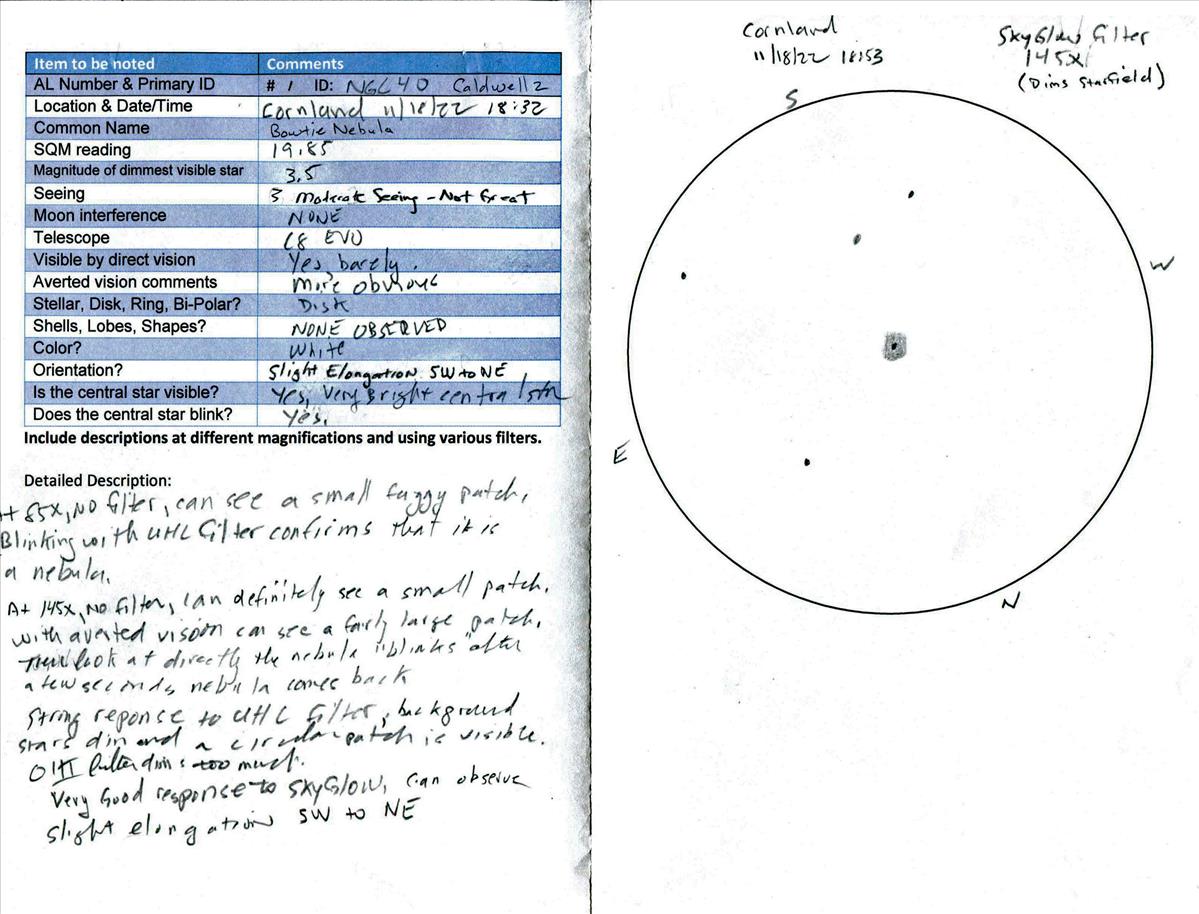 Item to be noted Comments
AL Number & Primary ID # 1 ID: NGC 40 Caldwell 2
Location & Date/Time Cornland 11/18/22 18:32
Common Name Bowtie Nebula
SQM reading 19.85
Magnitude of dimmest visible star 3.5
Seeing 3 Moderate Seeing - Not Great
Moon interference NONE
Telescope C8 EVO
Visible by direct vision Yes, barely.
Averted vision comments More obvious
Stellar, Disk, Ring, Bi-Polar? Disk
Shells, Lobes, Shapes? NONE OBSERVED
Color? White
Orientation? Slight Elongation SW to NE
Is the central star visible? Yes, Very Bright central star
Does the central star blink? Yes.
Include descriptions at different magnifications and using various filters.
Detailed Description:
At 85X, NO filter, can see a small fuggy patch,
Blinking with UHC Filter confirms that it is
a nebula.
At 145X, NO Filter, can definitely see a small patch.
with averted vision can see a fairly large patch,
look at directly the nebula "blinks" after
a few seconds nebula comes back
Strong reponse to UHC Filter, background
stars dim and a circular patch is visible.
OIII filter dims too much.
Very Good response to SKYGLOW, can observe
slight elongation SW to NE
Cornland
11/18/22 18:53
SkyGlow Filter
145X
(Dims Starfield)
S
W
E
N